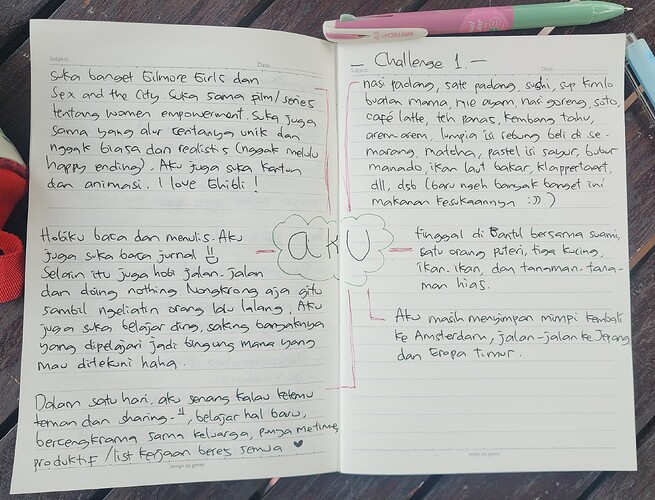 Subject:
Date:
suka banget Gilmore Girls dan
Sex and the City. Suka sama film/series
tentang women empowerment. Suka juga
sama yang alur ceritanya unik dan
nggak biasa dan realistis (nggak melulu
happy ending). Aku juga suka kartun
dan animasi. I love Ghibli!
Hobiku baca dan menulis. Aku
juga suka baca jurnal
Selain itu juga hobi jalan-jalan
dan doing nothing. Nongkrong aja gitu
sambil ngeliatin orang lalu lalang. Aku
juga suka belajar ding, saking banyaknya
yang dipelajari jadi bingung mana yang
mau ditekuni haha.
Dalam satu hari, aku senang kalau ketemu
teman dan sharing-, belajar hal baru,
bercengkrama sama keluarga, punya metime,
produktif /list kerjaan beres semua ♥
aku
- Challenge 1. -
Subject:
Date:
nasi padang, sate padang, sushi, sup kimlo
buatan mama, mie ayam, nasi goreng, soto,
café latte, teh panas, kembang tahu,
arem-arem, lumpia isi rebung beli di se-
marang, matcha, pastel isi sayur, bubur
manado, ikan laut bakar, klappertaart,
dll, dsb (baru ngeh banyak banget ini
makanan kesukaannya :)) )
tinggal di Bantul bersama suami,
satu orang puteri, tiga kucing,
ikan-ikan, dan tanaman-tana-
man hias.
Aku masih menyimpan mimpi kembali
ke Amsterdam, jalan-jalan ke Jepang
dan Eropa timur.